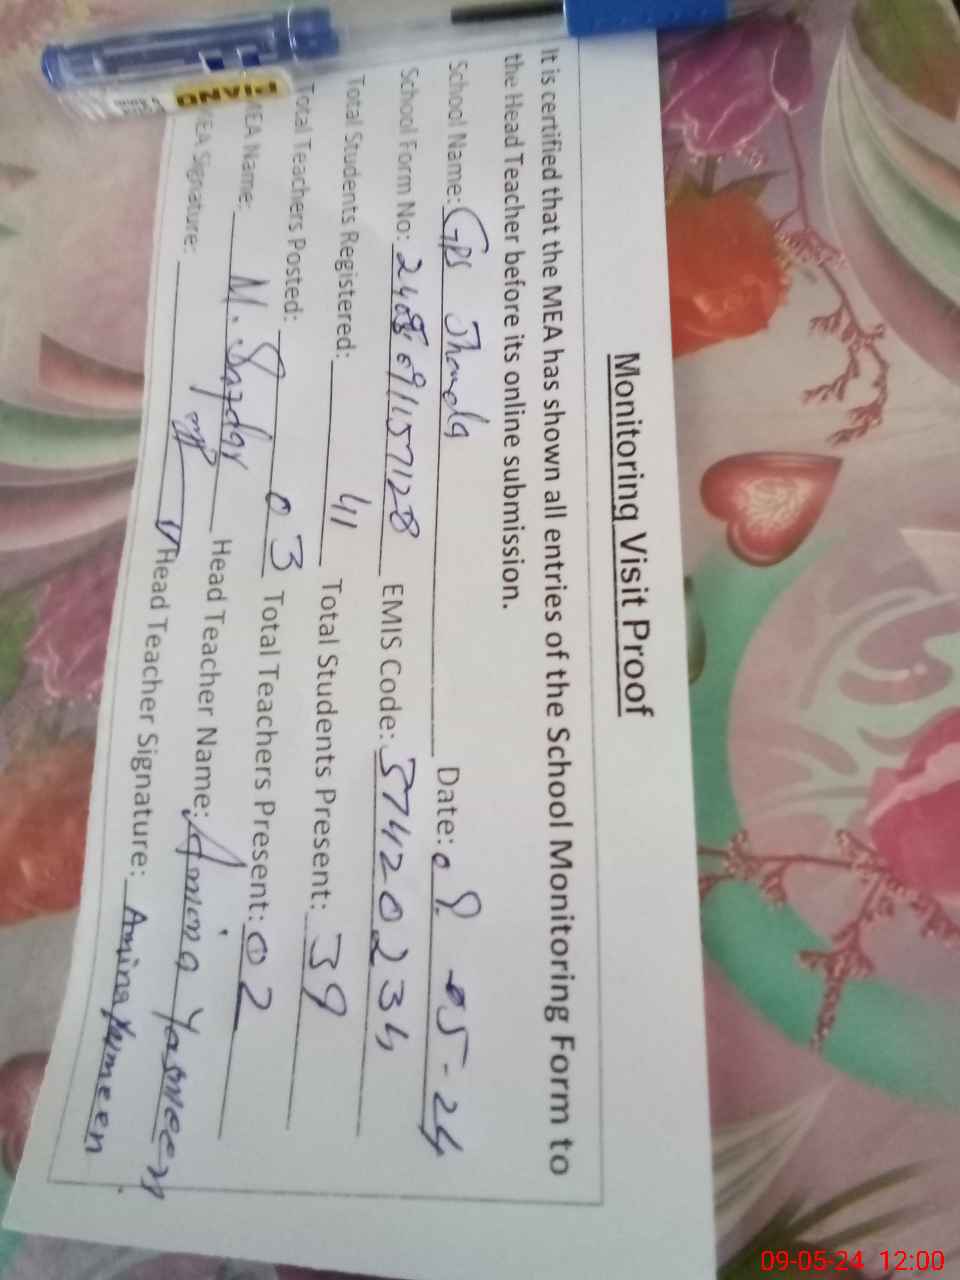 Monitoring Visit Proof
It is certified that the MEA has shown all entries of the School Monitoring Form to
the Head Teacher before its online submission.
School Name: GPS Date: 09-05-24
School Form No: EMIS Code: 37420234
Total Students Registered: 41 Total Students Present: 39
Total Teachers Posted: 03 Total Teachers Present: 02
MEA Name: M. Head Teacher Name: Amina Yasmeen
MEA Signature: Head Teacher Signature: Amina Yasmeen
09-05-24 12:00